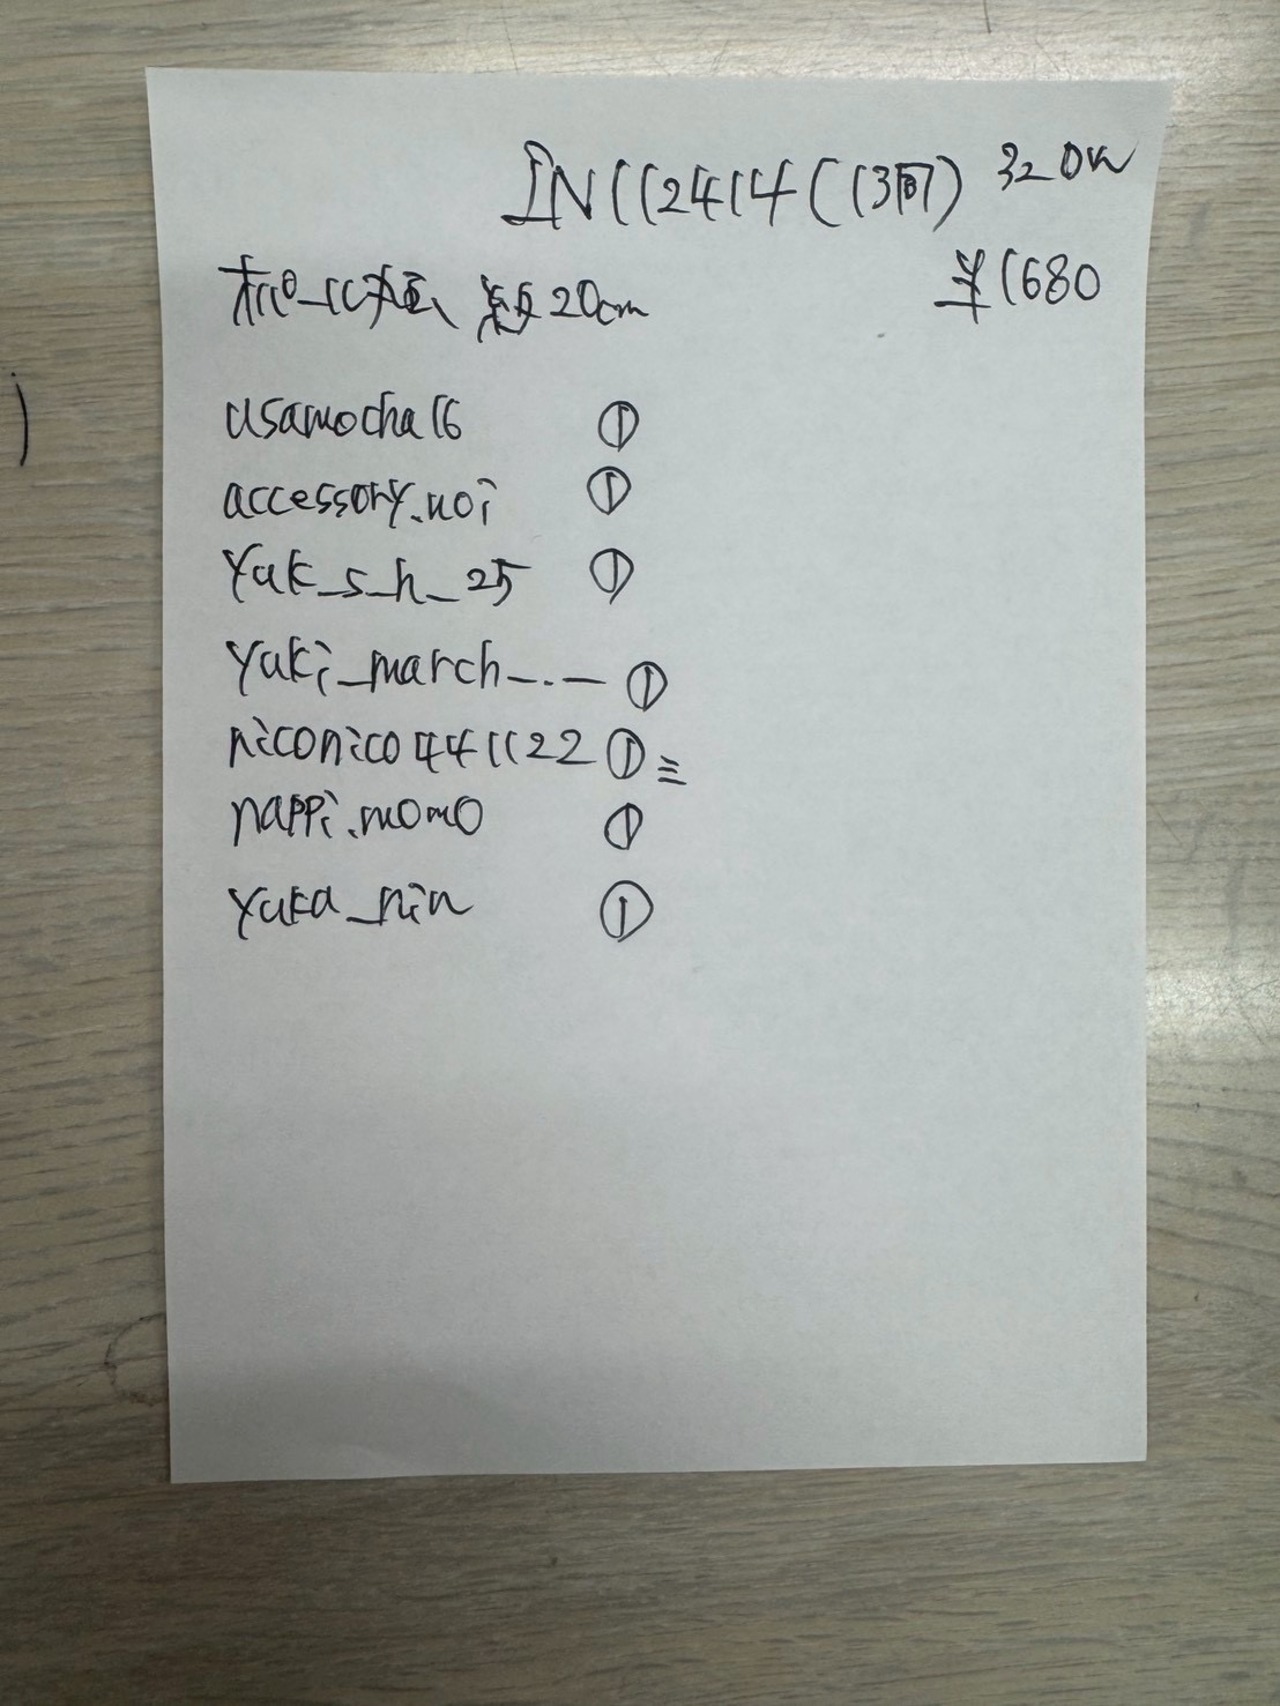 IN112414 (113同) 320w
¥1680
20cm
usamocha16 ①
accessory.noi ①
yuk_s_h_25 ①
yuki_march_._ ①
niconico441122 ①
nappi.momo ①
yuka_nin ①